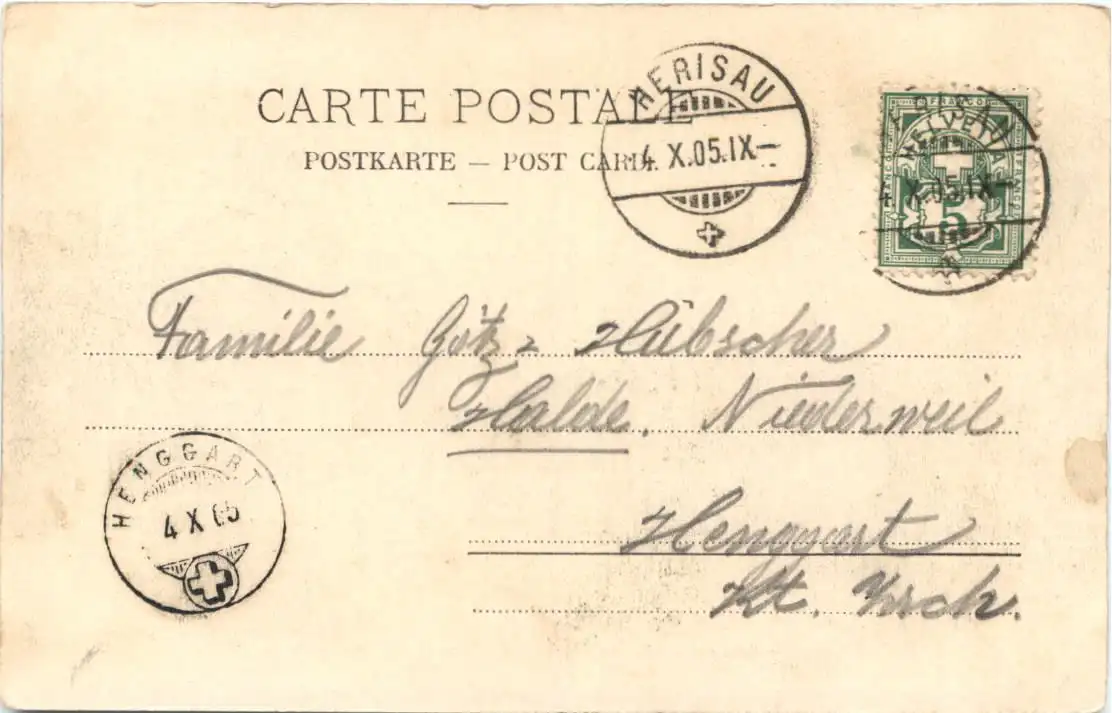 CARTE POSTALE
POSTKARTE — POST CARD.
HERISAU
4. X.05.IX—
FRANCO
HELVETIA
X.05.IX—
5
Familie Götz - Hübscher
Halde, Niederweil
HENGGART
4 X 05
Henggart
Kt. Zrch.